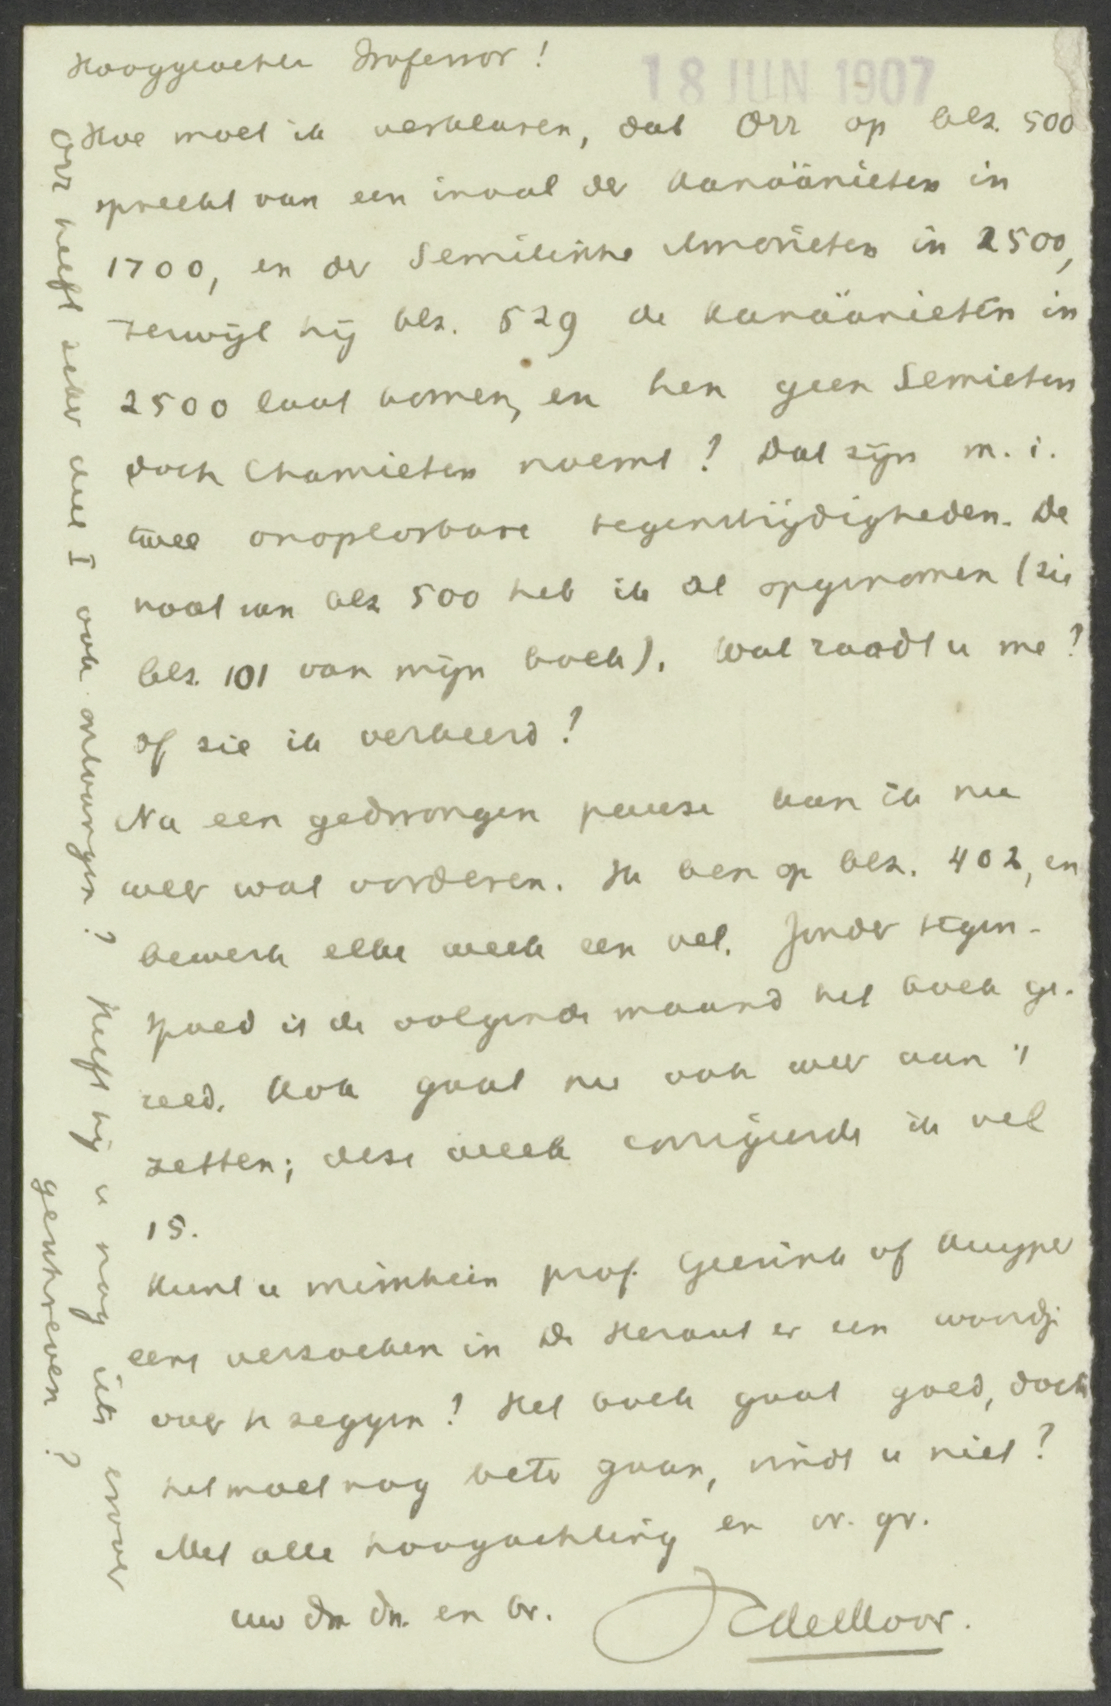 Hooggeachte Professor!
18 JUN 1907
Hoe moet ik verklaren, dat Orr op blz. 500
spreekt van een inval der Kanaänieten in
1700, en der Semitische Amorieten in 2500,
terwijl hij blz. 529 de Kanaänieten in
2500 laat komen, en hen geen Semieten
doch Chamieten noemt? Dat zijn m. i.
twee onoplosbare tegenstrijdigheden. De
noot van blz 500 heb ik al opgenomen (zie
blz. 101 van mijn boek). Wat raadt u me?
of zie ik verkeerd?
Na een gedwongen pauze kan ik nu
weer wat vorderen. Ik ben op blz. 402, en
bewerk elke week een vel. Zonder tegen-
spoed is de volgende maand het boek ge-
reed. Kok gaat nu ook weer aan 't
zetten; deze week corrigeerde ik vel
15.
Kunt u misschien prof. Geesink of Kuyper
eens verzoeken in De Heraut er een woordje
over te zeggen? Het boek gaat goed, doch
het moet nog beter gaan, vindt u niet?
Met alle hoogachting en br. gr.
uw dw. dn. en br.
J C de Moor.
Orr heeft zeker deel I ook ontvangen? Heeft hij u nog iets erover
geschreven?